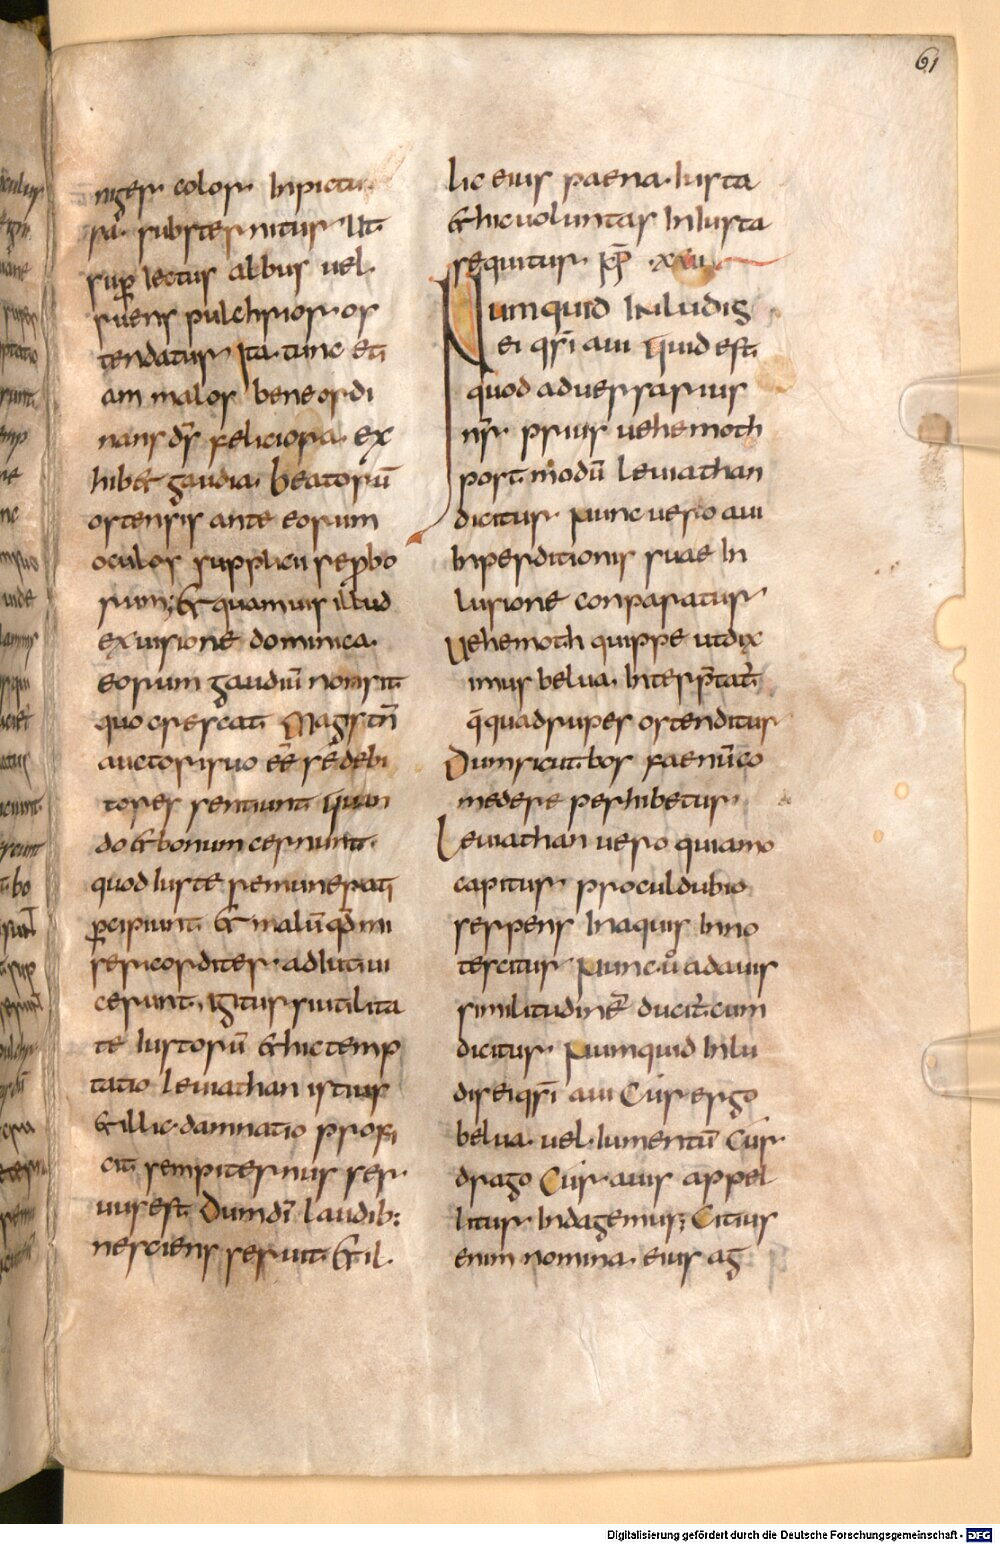 61
niger color Inpictu
ra substernitur Ut
sup̄ iectus albus uel
ruens pulchrior os
tendatur Ita tunc eti
am malos bene ordi
nans ds̄ feliciora ex
hibet gaudia beatorū
ostensis ante eorum
oculos supplicii rep̱bo
rum; & quamuis illud
ex uisione dominica
eorum gaudiū non sit
quo crescat Magis tn̄
auctori suo eē sē debi
tores sentiunt quan
do & bonum cernunt
quod Iuste remunerati
ꝑcipiunt & malū qd̄ mi
sericorditer adIuti ui
cerunt, igitur si utilita
te Iustorū & hic temp
tatio Leuiathan istius
& illic damnatio profi
cit sempiternus ser
uus est Dum dī Laudib:
nesciens seruit & il
lic eius paena Iusta
& hic uoluntas InIusta
sequitur
Numquid Inludis
ei qsī aui quid est
quod aduersarius
nr̄ prius uehemoth
post modū Leuiathan
dicitur Nunc uero aui
Inperditionis suae In
lusione conparatur
Uehemoth quippe ut dix
imus belua Interp̄tat̄
q̄ quadrupes ostenditur
Dum sicut bos faenū co
medere perhibetur
Leuiathan uero quia mo
capitur procul dubio
serpens Inaquis Inno
tescitur Nunc ů ad auis
similitudinē ducit cum
dicitur Numquid Inlu
dis ei qsī aui Cur ergo
belua uel Iumentū Cur
drago Cur auis appel
litur Indagemus; Citius
enim nomina eius ag
Digitalisierung gefördert durch die Deutsche Forschungsgemeinschaft - DFG